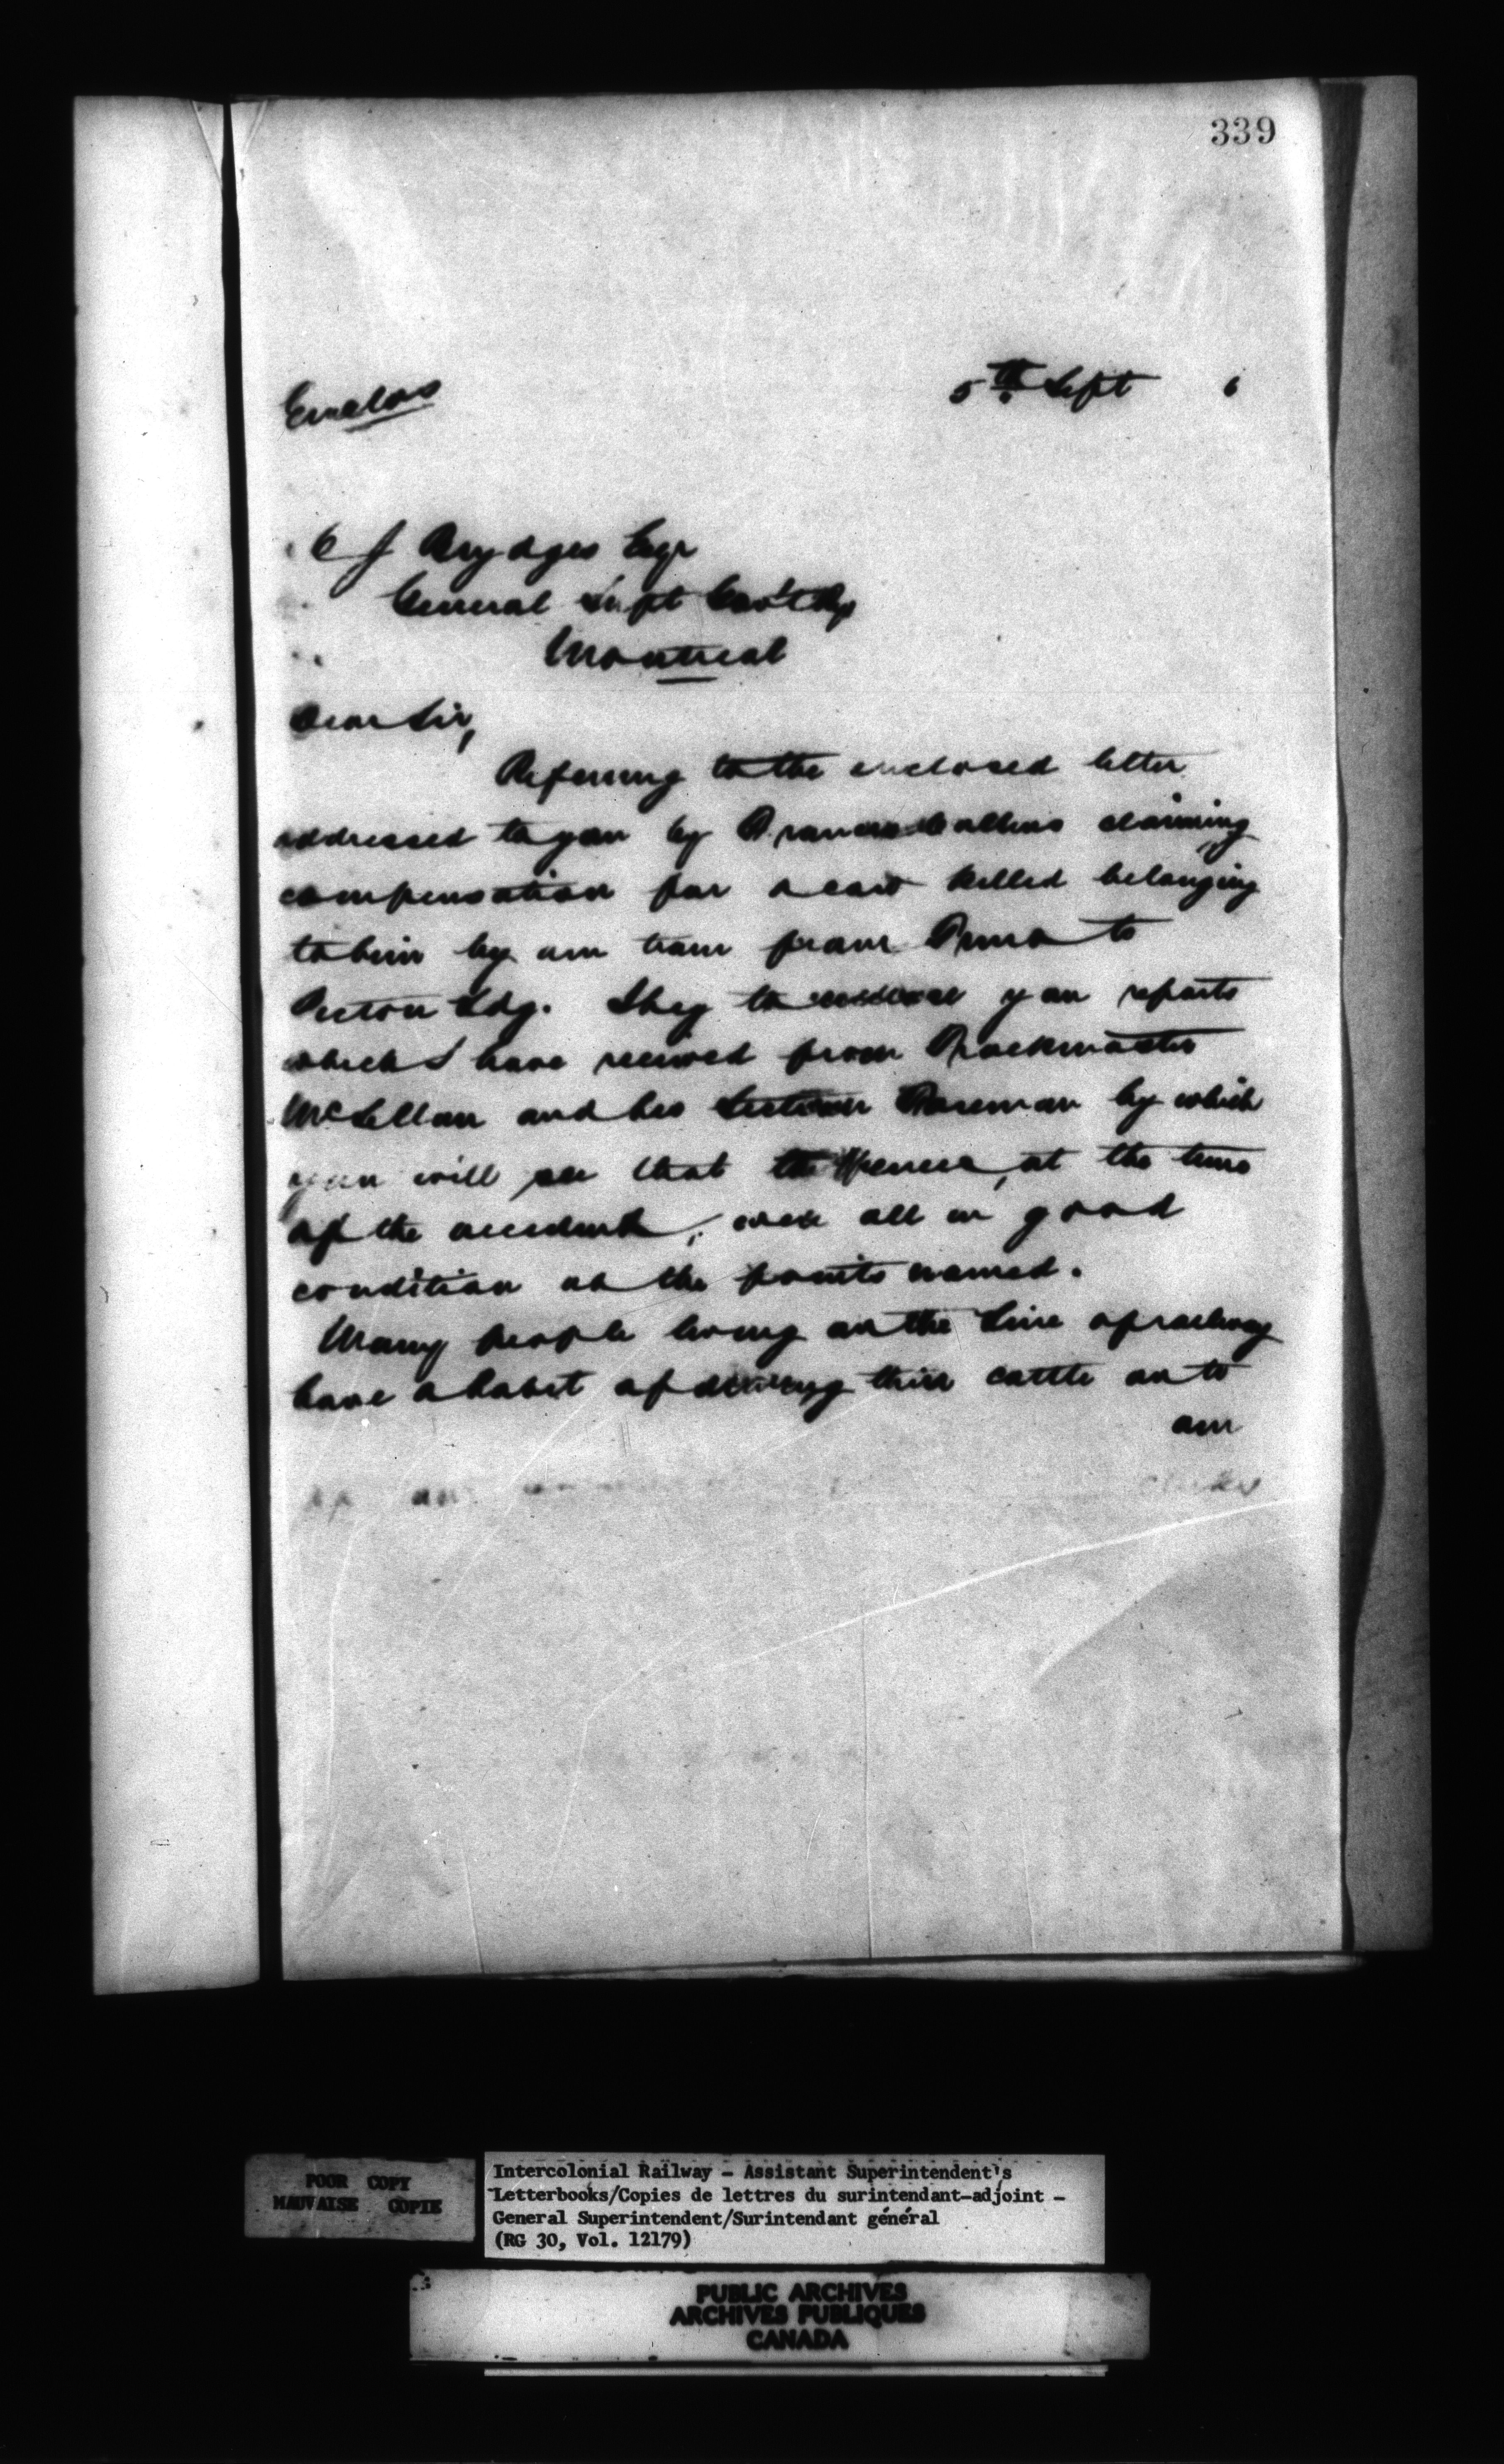 339
Enclos
5th Sept 6
C J Brydges Esqr
General Supt Gov't Rys
Montreal
Dear Sir,
Referring to the enclosed letter
addressed to you by Francis Collins claiming
compensation for a cow killed belonging
to him by our train from Truro to
Pictou Ldg. I beg to enclose you reports
which I have received from Trackmaster
McLellan and his Section Foreman by which
you will see that the fences, at the time
of the accident, were all in good
condition at the points named.
Many people living on the line of railway
have a habit of driving their cattle on to
our
POOR COPY
MAUVAISE COPIE
Intercolonial Railway - Assistant Superintendent's
Letterbooks/Copies de lettres du surintendant-adjoint -
General Superintendent/Surintendant général
(RG 30, Vol. 12179)
PUBLIC ARCHIVES
ARCHIVES PUBLIQUES
CANADA